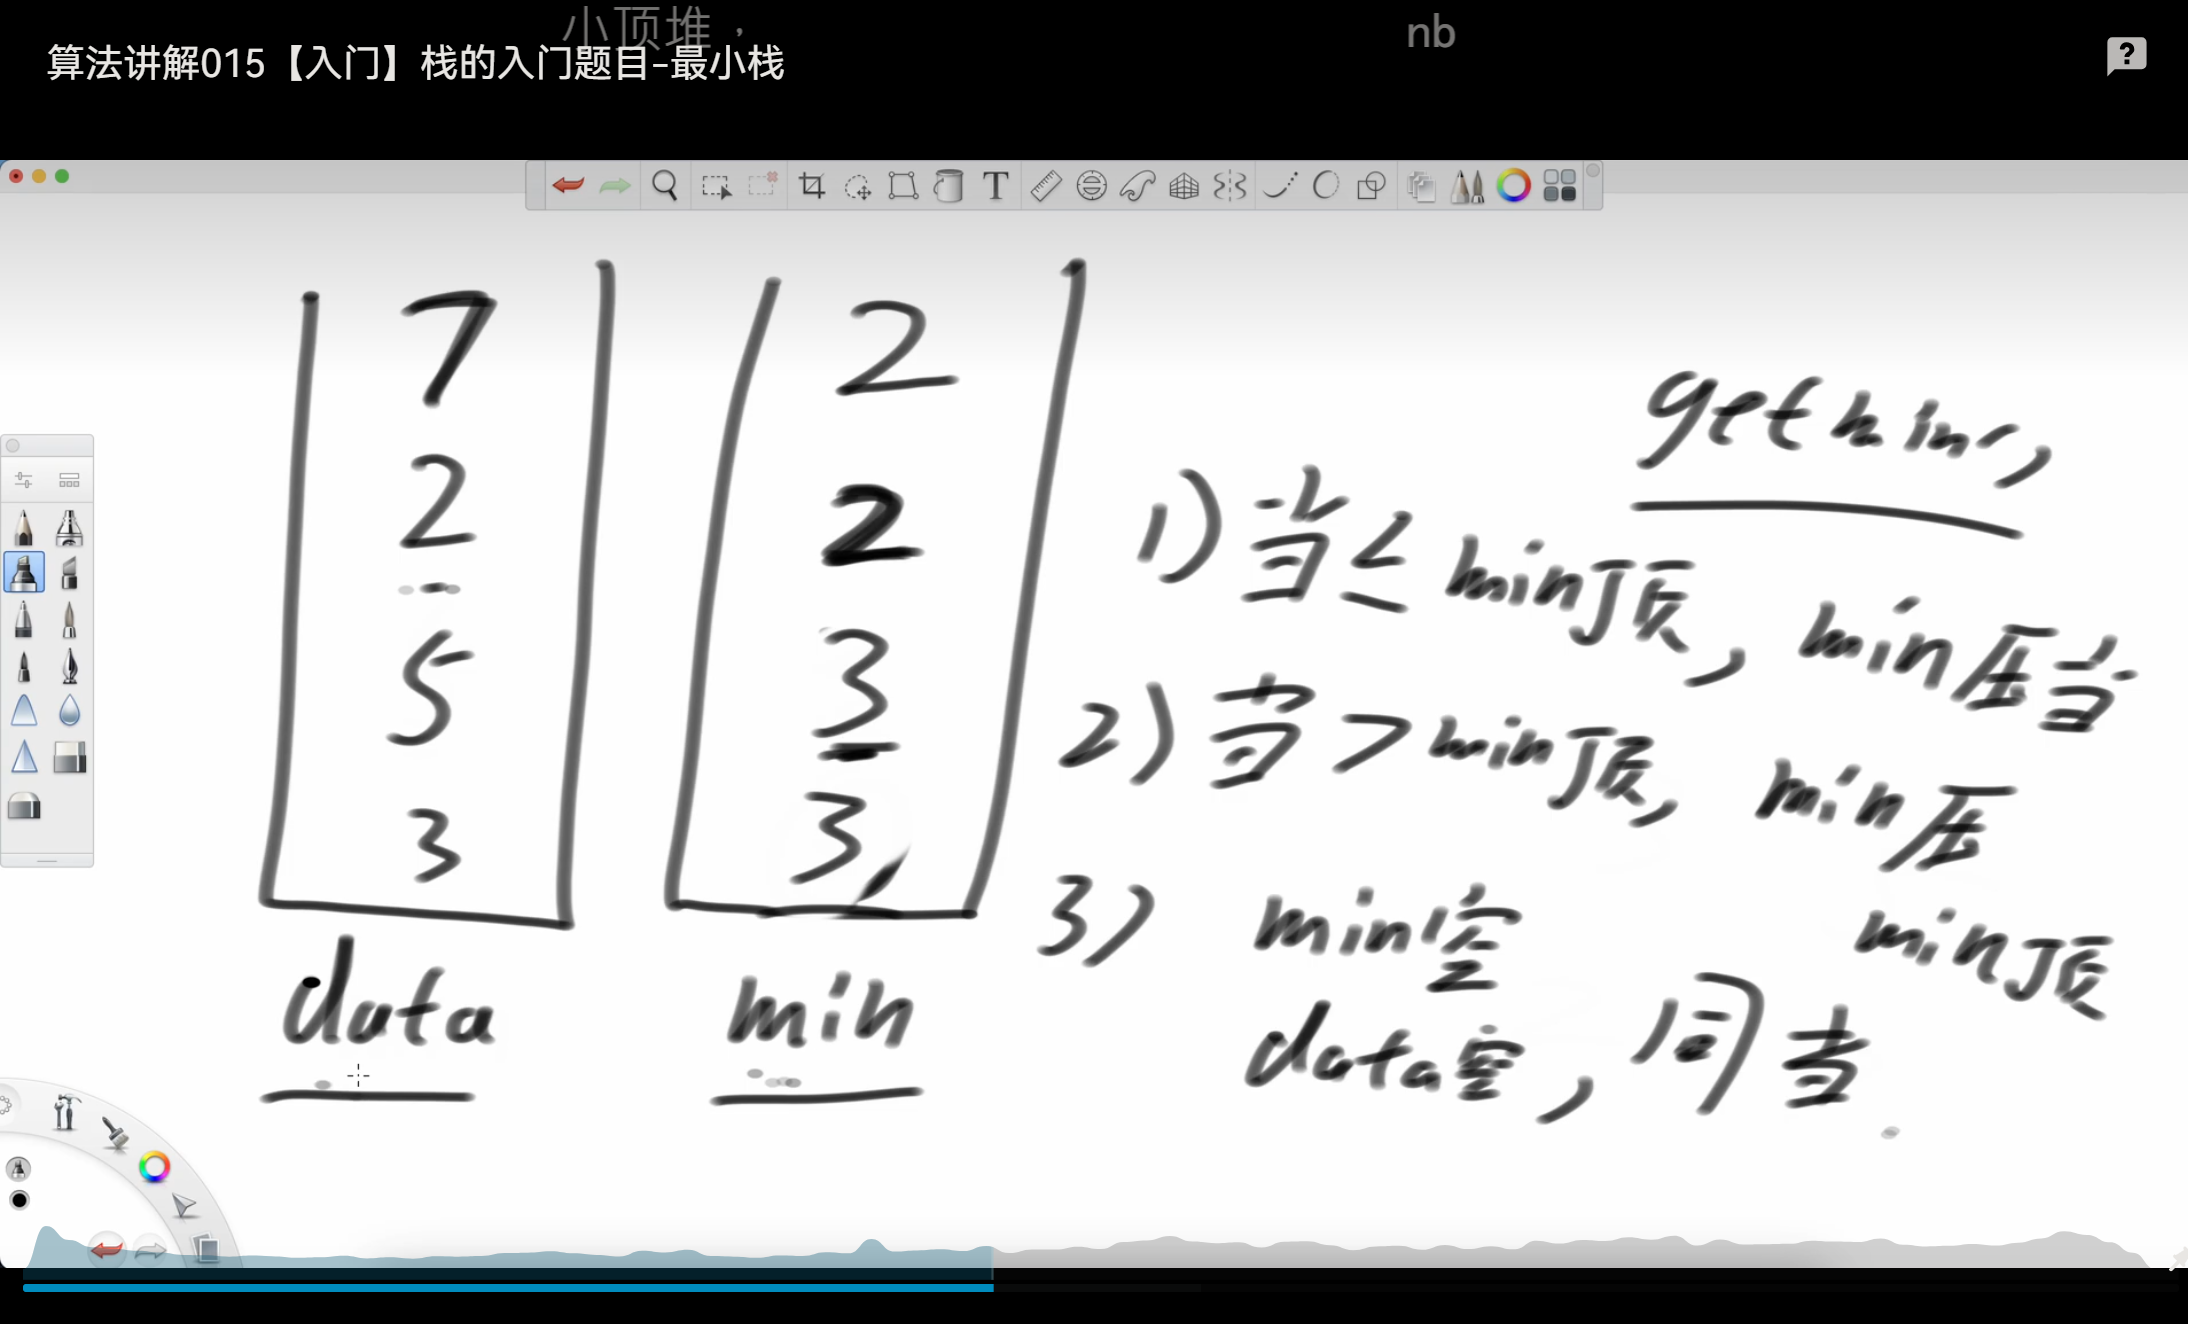 小顶堆， nb
算法讲解015【入门】栈的入门题目-最小栈
T
7 2
2 2
5 3
3 3
data min
getmin,
1) 当≤min顶, min压当
2) 当>min顶, min压
min顶
3) min空
data空, 同当.